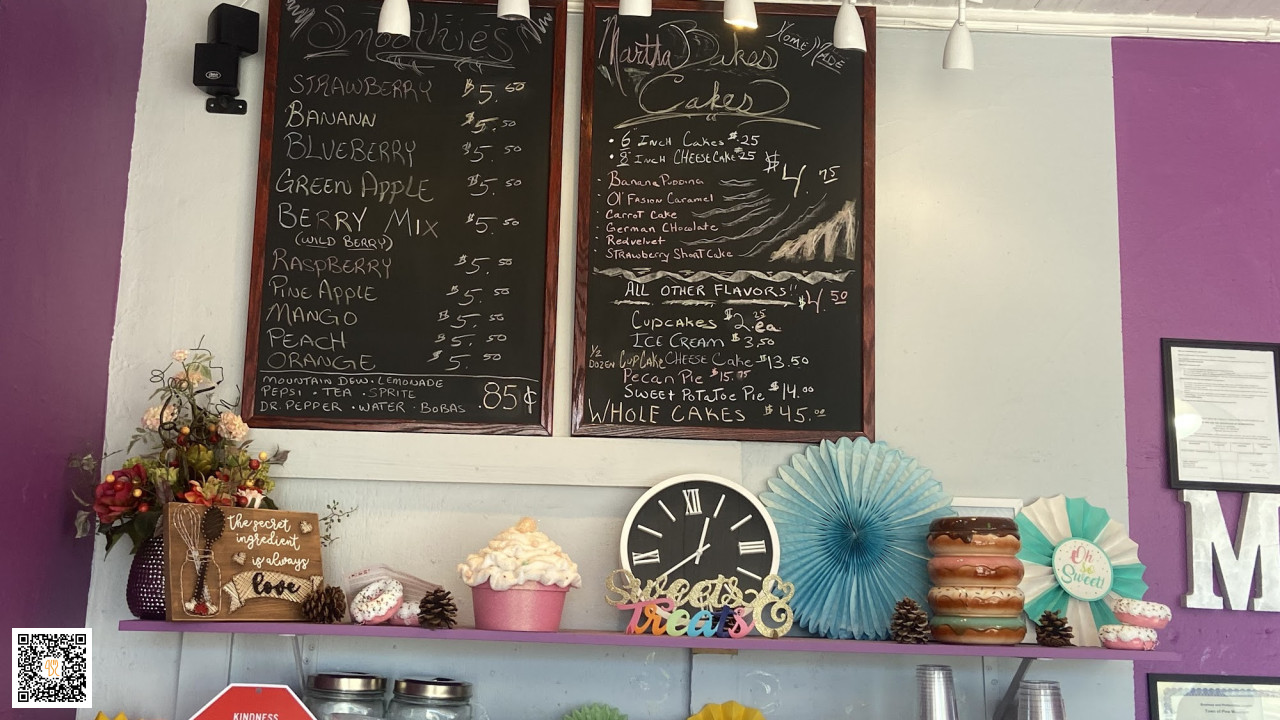 Smoothies
STRAWBERRY $5.50
BANANN $5.50
BLUEBERRY $5.50
GREEN Apple $5.50
BERRY Mix $5.50
(WILD BERRY)
RASPBERRY $5.50
PINE APPLE $5.50
MANGO $5.50
PEACH $5.50
ORANGE $5.50
MOUNTAIN DEW • LEMONADE
PEPSI • TEA • SPRITE .85¢
DR. PEPPER • WATER • BOBAS
Martha Dukes HOME MADE
Cakes
• 6" INCH Cakes $.25
• 8" INCH CHEESE Cake $25
$4.75
• Banana Pudding
• Ol' Fasion Caramel
• Carrot Cake
• German CHocolate
• Redvelvet
• STRAWberry Short Cake
ALL OTHER FLAVORS!! $4.50
Cupcakes $2.25 ea
ICE CREAM $3.50
1/2 DOZEN CupCake CHEESE Cake $13.50
Pecan Pie $15.75
Sweet Potatoe Pie $14.00
WHOLE CAKES $45.00
the secret
ingredient
is always
love
XII
III
IX
Sweets &
treats
Oh
so
Sweet!
M
KINDNESS